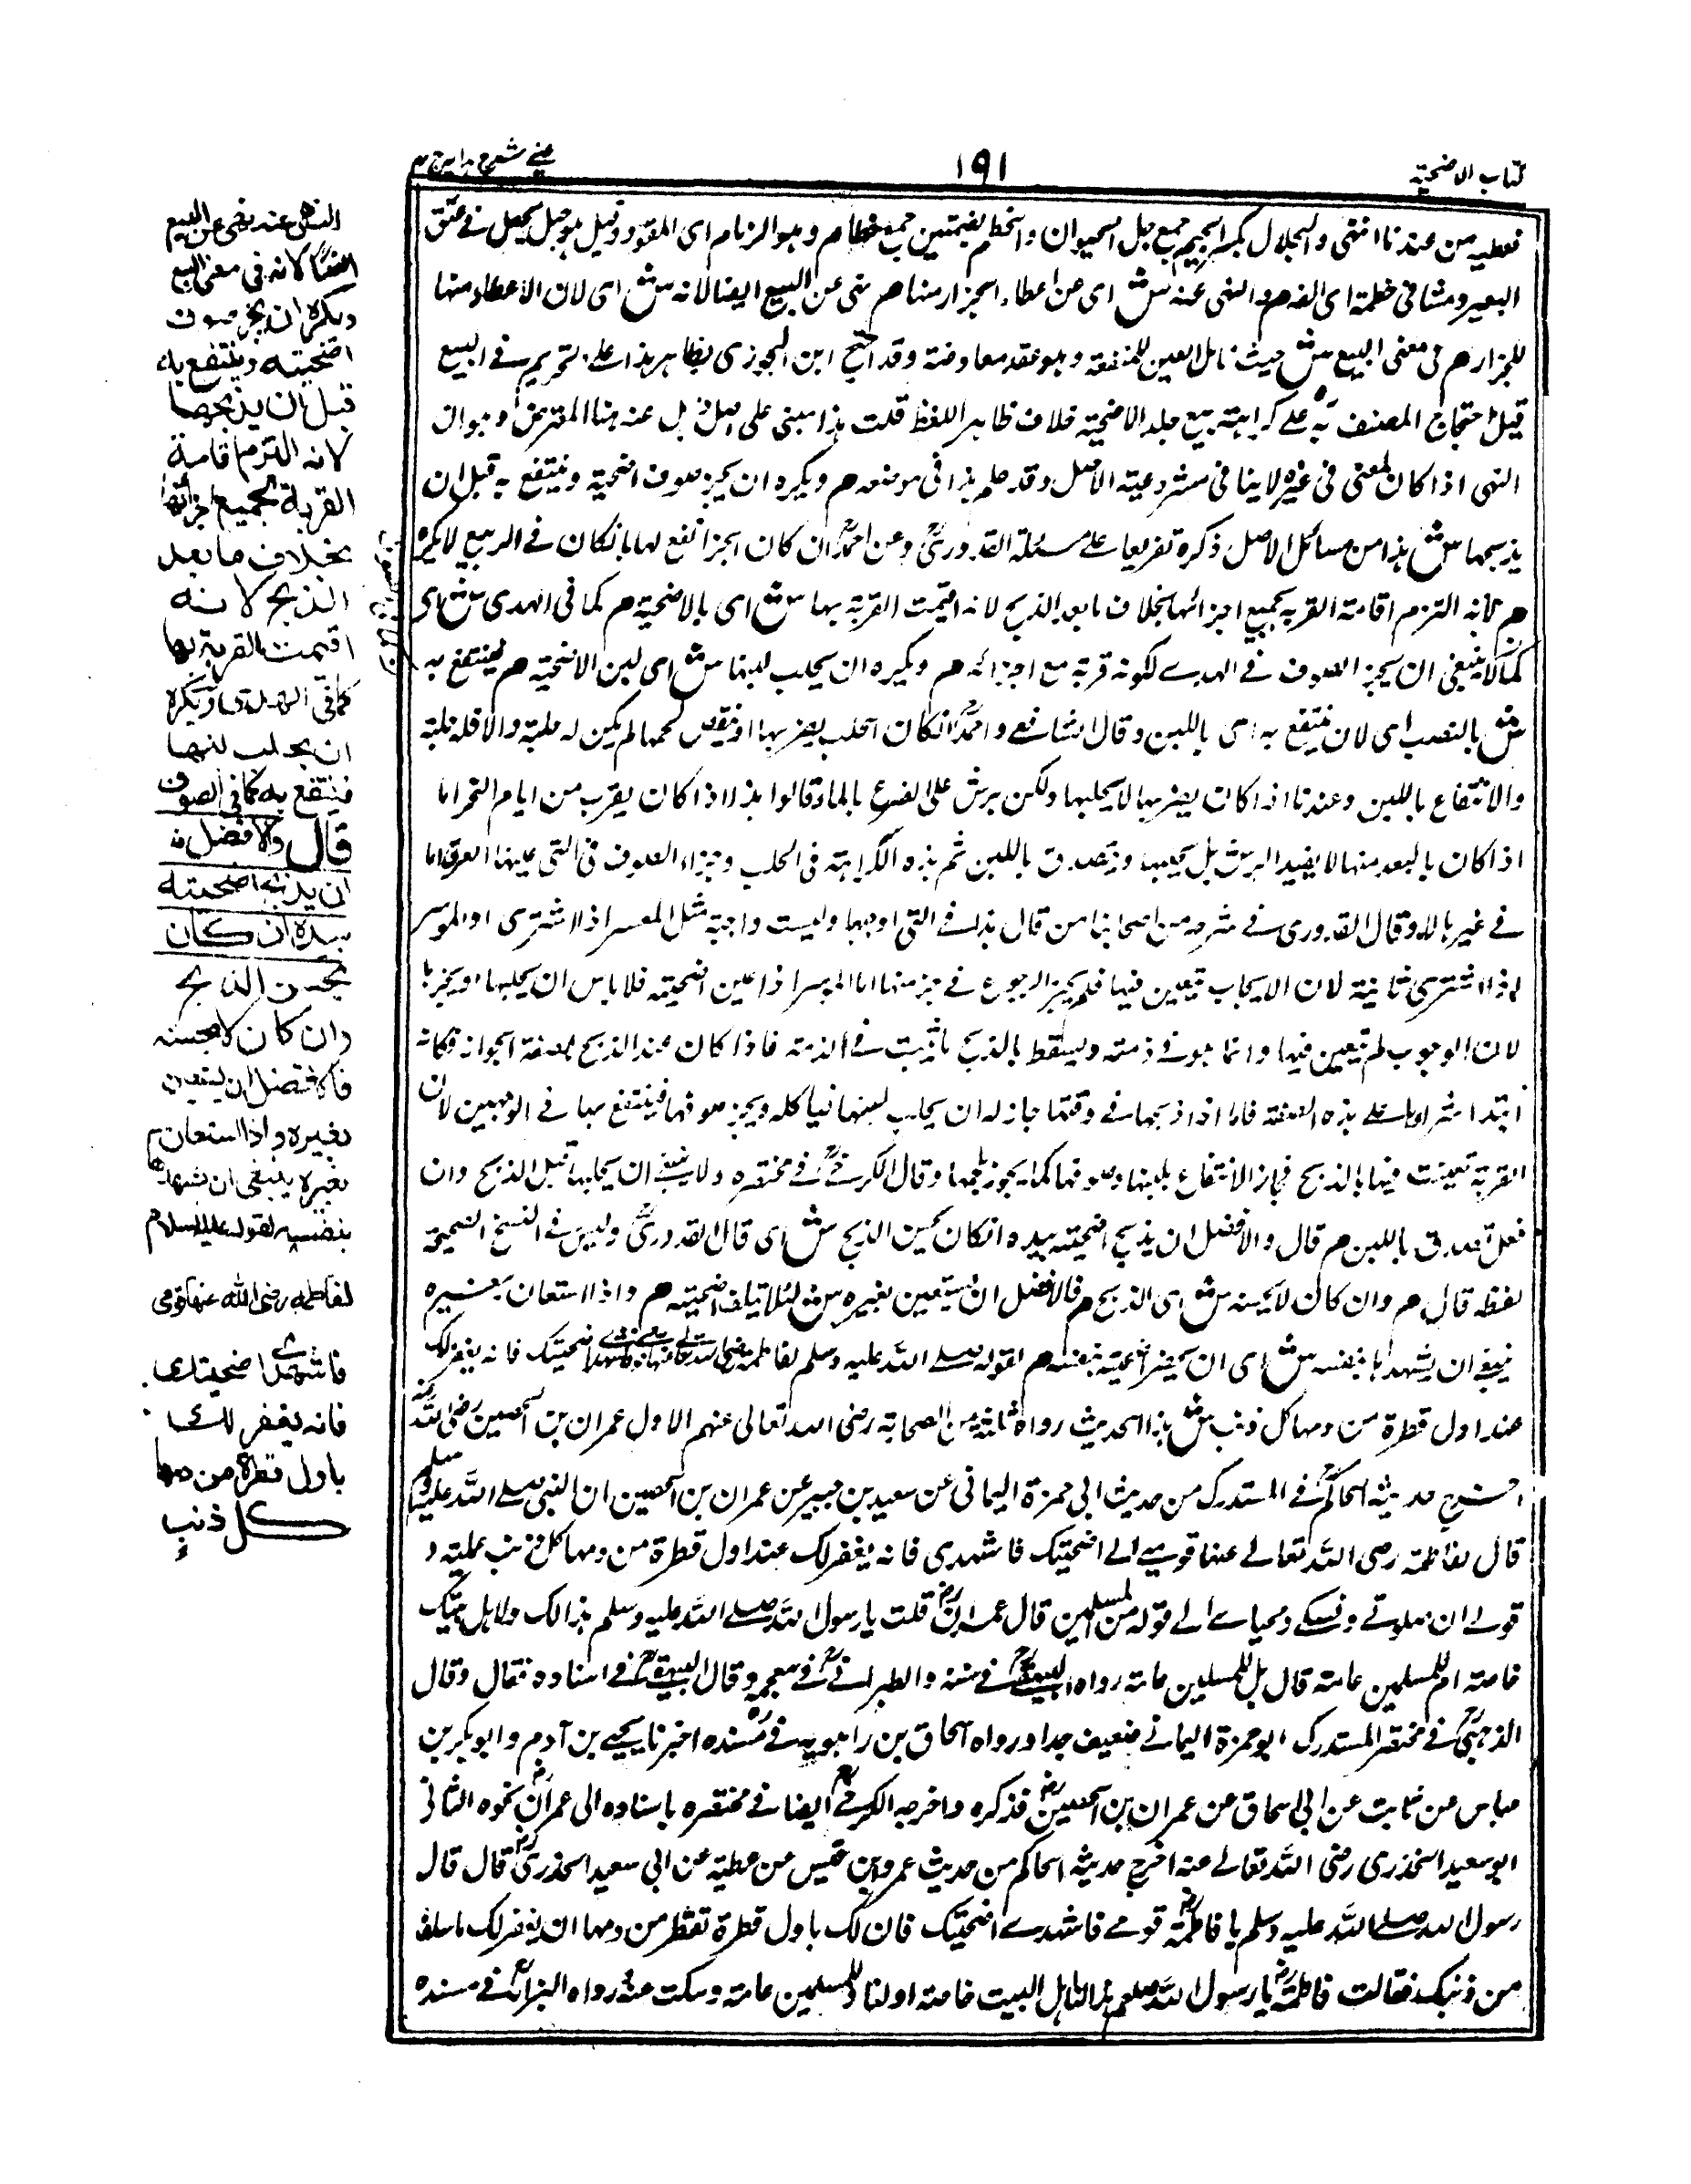 كتاب الاضحية
١٩١
عيني شرح هداية ج ٤
نعطيه من عندنا انتهى والجلال بكسر الجيم جمع جل الحيوان والخطم بضمتين جمع خطام وهو الزمام اى المقود وقيل هو حبل يجعل في عنق
البعير ومثنا في خطمه اى انفه م والنهى عنه ش اى عن اعطاء الجزار منها م نهى عن البيع ايضا لانه ش اى لان الاعطاء منها
للجزار م في معنى البيع ش حيث نال العين للمنفعة وهو عقد معاوضة وقد احتج ابن الجوزى بظاهر هذا على تحريم في البيع
قيل احتجاج المصنف به على كراهة بيع جلد الاضحية خلاف ظاهر اللفظ قلت هذا مبنى على اصل ذهل عنه هذا المعترض وهو ان
النهى اذا كان لمعنى في غيره لا ينافى مشروعية الاصل وقد علم هذا في موضعه م ويكره ان يجز صوف اضحية وينتفع به قبل ان
يذبحها ش هذا من مسائل الاصل ذكره تفريعا على مسئلة القدورى وعن احمد ان كان الجز انفع لها بان كان في الربيع لا يكره
م لانه التزم اقامة القربة بجميع اجزائها بخلاف ما بعد الذبح لانه اقيمت القربة بها ش اى بالاضحية م كما في الهدى ش اى
كما لا ينبغى ان يجز الصوف في الهدى لكونه قربة مع اجزائه م ويكره ان يحلب لبنها ش اى لبن الاضحية م فينتفع به
ش بالنصب اى لان ينتفع به اى باللبن وقال الشافعى واحمد ان كان الحلب يضر بها او ينقص لحمها لم يكن له حلبه والا فله حلبه
والانتفاع باللبن وعندنا اذا كان يضر بها لا يحلبها ولكن يرش على الضرع بالماء وقالوا هذا اذا كان يقرب من ايام النحر اما
اذا كان بالبعد منها لا يفيد الرش بل يحلبها ويتصدق باللبن ثم هذه الكراهة في الحلب وجزاء الصوف في التى عينها العرق اما
في غير بالا وقال القدورى في شرحه من اصحابنا من قال هذا في التى اوجبها وليست واجبة مثل المعسر اذا اشترى او الموسر
اذا اشترى ثانية لان الايجاب تعين فيها فلم يجز الرجوع في جزء منها اما الموسر اذا عين اضحية فلا باس ان يحلبها او يجزها
لان الوجوب لم يتعين فيها وانما هو في ذمته ويسقط بالذبح ما ثبت في الذمة فاذا كان عند الذبح بصفة الجواز فكانه
ابتدا شراءها على هذه الصفة فاما اذا ذبحها في وقتها جاز له ان يحلب لبنها فياكله ويجز صوفها فينتفع بها في الوجهين لان
القربة تعينت فيها بالذبح فجاز الانتفاع بلبنها وصوفها كما يجوز بلحمها وقال الكرخى في مختصره ولا ينبغى ان يحلبها قبل الذبح وان
فعل تصدق باللبن م قال والافضل ان يذبح اضحيته بيده ان كان يحسن الذبح ش اى قال القدورى وليس في النسخ الصحيحة
لفظ قال م وان كان لا يحسنه ش اى الذبح م فالافضل ان يستعين بغيره ش لئلا يتلف اضحيته م واذا استعان بغيره
ينبغى ان يشهدها بنفسه ش اى ان يحضر اضحيته بنفسه م لقوله صلى الله عليه وسلم لفاطمة رضى الله تعالى عنها قومى فاشهدى اضحيتك فانه يغفر لك
عند اول قطرة من دمها كل ذنب ش هذا الحديث رواه ثلثة من الصحابة رضى الله تعالى عنهم الاول عمران بن الحصين رضى الله عنه
اخرج حديثه الحاكم في المستدرك من حديث ابى حمزة اليمانى عن سعيد بن جبير عن عمران بن الحصين ان النبى صلى الله عليه وسلم
قال لفاطمة رضى الله تعالى عنها قومى الى اضحيتك فاشهدى فانه يغفر لك عند اول قطرة من دمها كل ذنب عملتيه و
قولى ان صلوتى ونسكى ومحياى الى قوله من المسلمين قال عمران قلت يا رسول الله صلى الله عليه وسلم هذا لك ولاهل بيتك
خاصة ام للمسلمين عامة قال بل للمسلمين عامة رواه البيهقى في سننه والطبرانى في معجمه وقال البيهقى في اسناده مقال وقال
الذهبى في مختصر المستدرك ابو حمزة اليمانى ضعيف جدا ورواه اسحاق بن راهويه في مسنده اخبرنا يحيى بن آدم وابو بكر بن
عياش عن ثابت عن ابى اسحاق عن عمران بن الحصين فذكره واخرجه الكرخى ايضا في مختصره باسناده الى عمران نحوه الثانى
ابو سعيد الخدرى رضى الله تعالى عنه اخرج حديثه الحاكم من حديث عمرو بن قيس عن عطية عن ابى سعيد الخدرى قال قال
رسول الله صلى الله عليه وسلم يا فاطمة قومى فاشهدى اضحيتك فان لك باول قطرة تقطر من دمها ان يغفر لك ما سلف
من ذنبك فقالت فاطمة يا رسول الله صلعم هذا لنا اهل البيت خاصة او لنا وللمسلمين عامة وسكت عنه رواه البزار في مسنده
النهى عنه نهى عن البيع
ايضا لانه فى معنى البيع
ويكره ان يجز صوف
اضحيته وينتفع به
قبل ان يذبحها
لانه التزم اقامة
القربة بجميع اجزائها
بخلاف ما بعد
الذبح لانه
اقيمت القربة بها
كما فى الهدى ويكره
ان يحلب لبنها
فينتفع به كما فى الصوف
قال والافضل
ان يذبح اضحيته
بيده ان كان
يحسن الذبح
وان كان لا يحسنه
فالافضل ان يستعين
بغيره واذا استعان
بغيره ينبغى ان يشهدها
بنفسه لقوله عليه السلام
لفاطمة رضى الله عنها قومى
فاشهدى اضحيتك
فانه يغفر لك
باول قطرة من دمها
كل ذنب